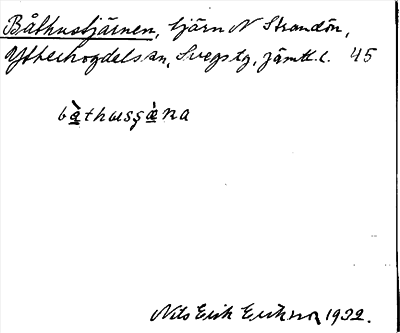 Båthustjärnen, tjärn N Strandön,
Ytterhogdals sn, Svegs tg, Jämtl. l. 45
bàthusʒæ̀na
Nils Erik Erikson 1932.